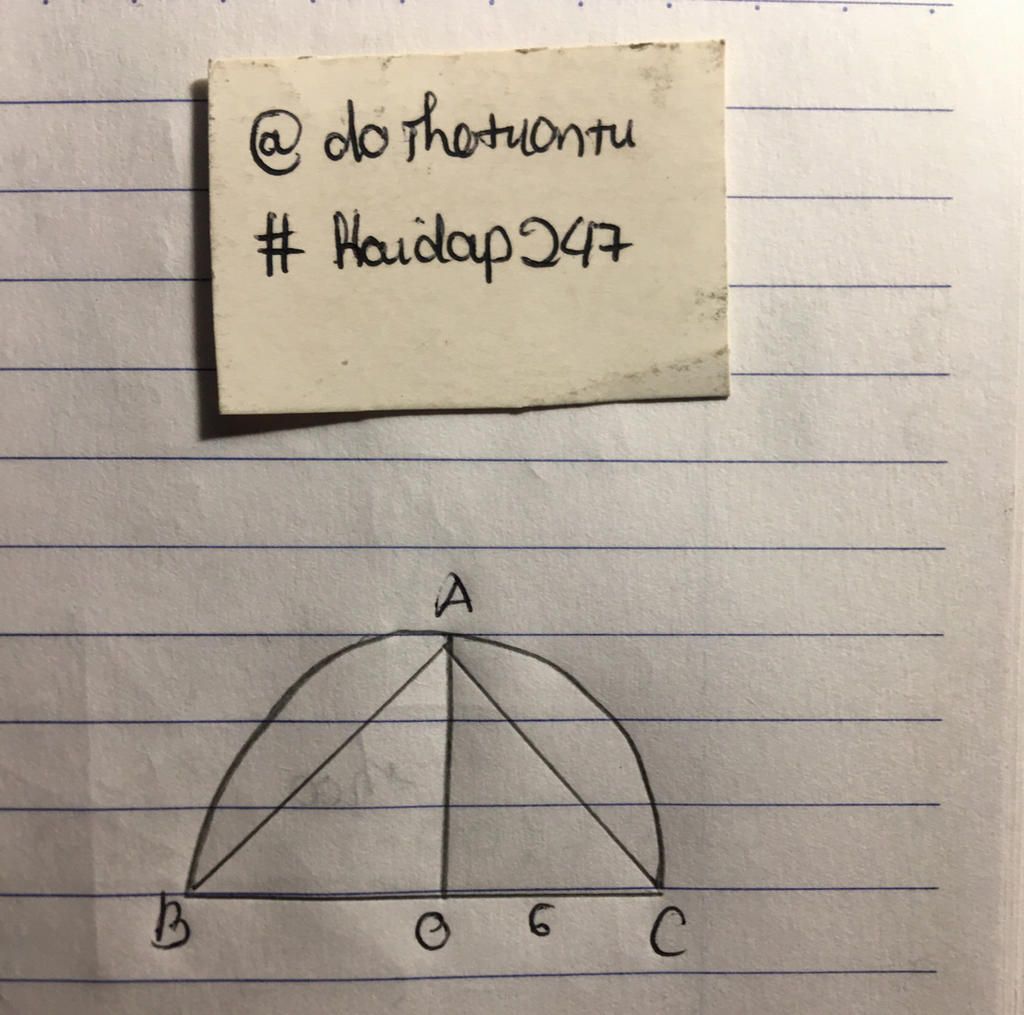 @ dothetuantu
# Hoidap247
A
B O 6 C